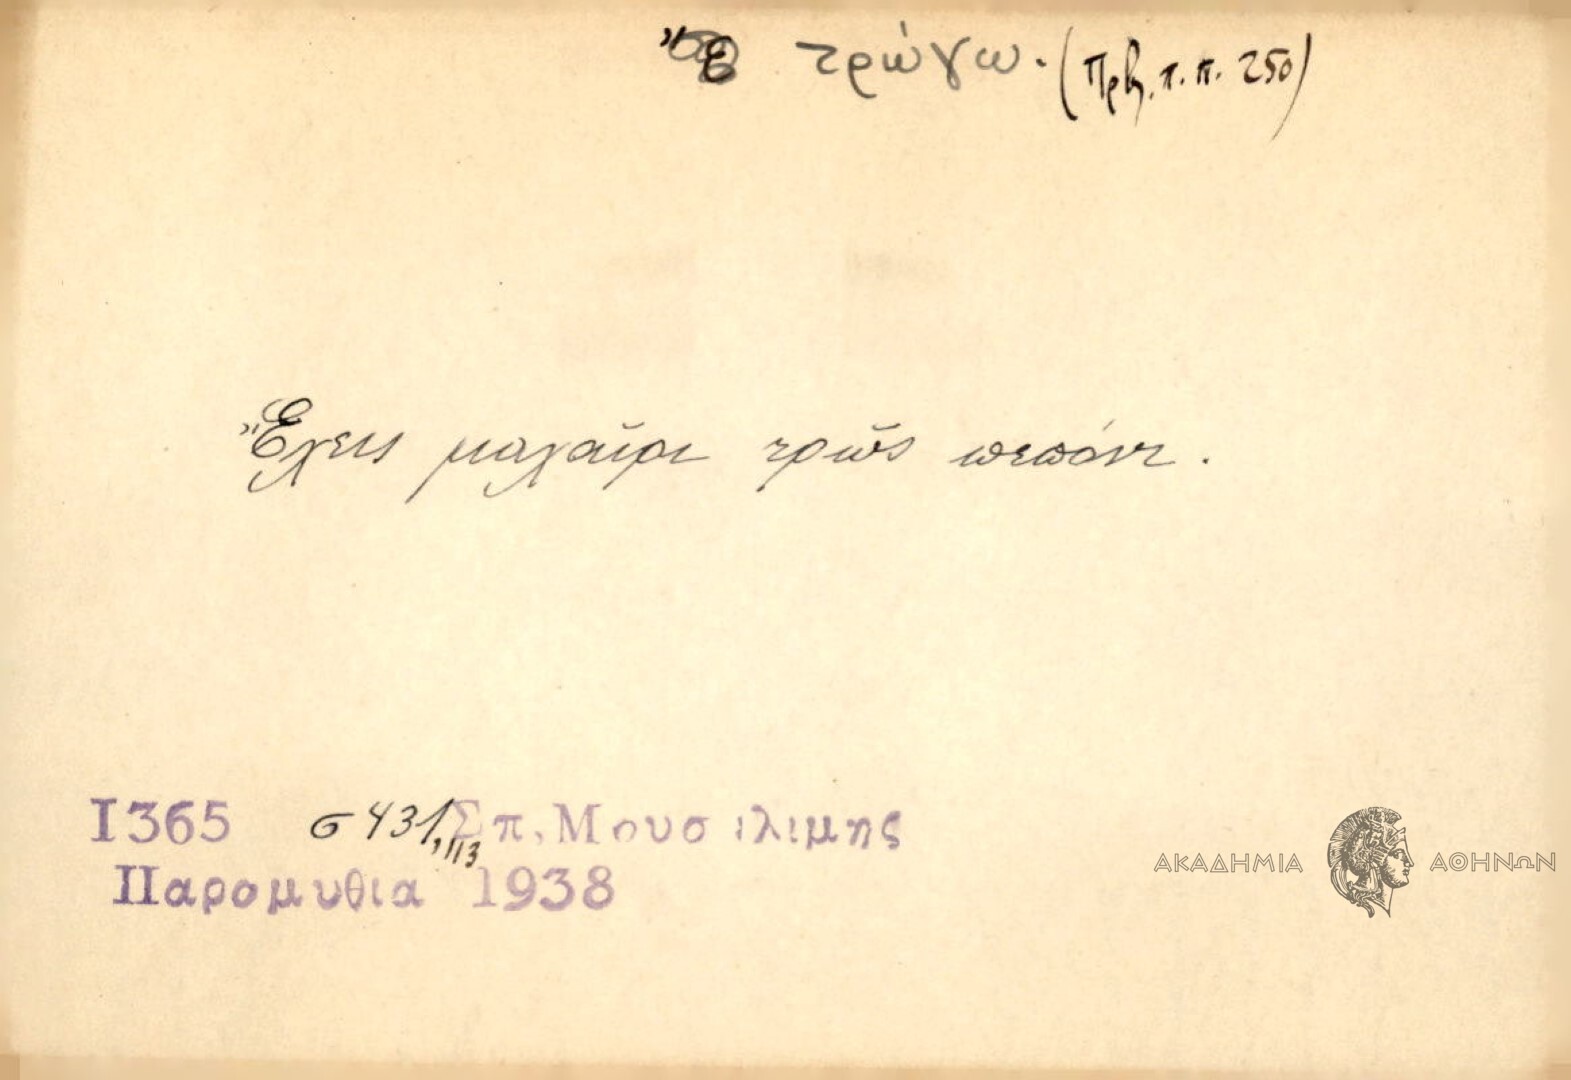 τρώγω. (Πρβ. π. π. 250)
Ἔχεις μαχαῖρι τρῶς πεπόνι.
Ι365 σ 431, 113 Σπ. Μουσ λιμης
Παραμυθια 1938
ΑΚΑΔΗΜΙΑ ΑΘΗΝΩΝ